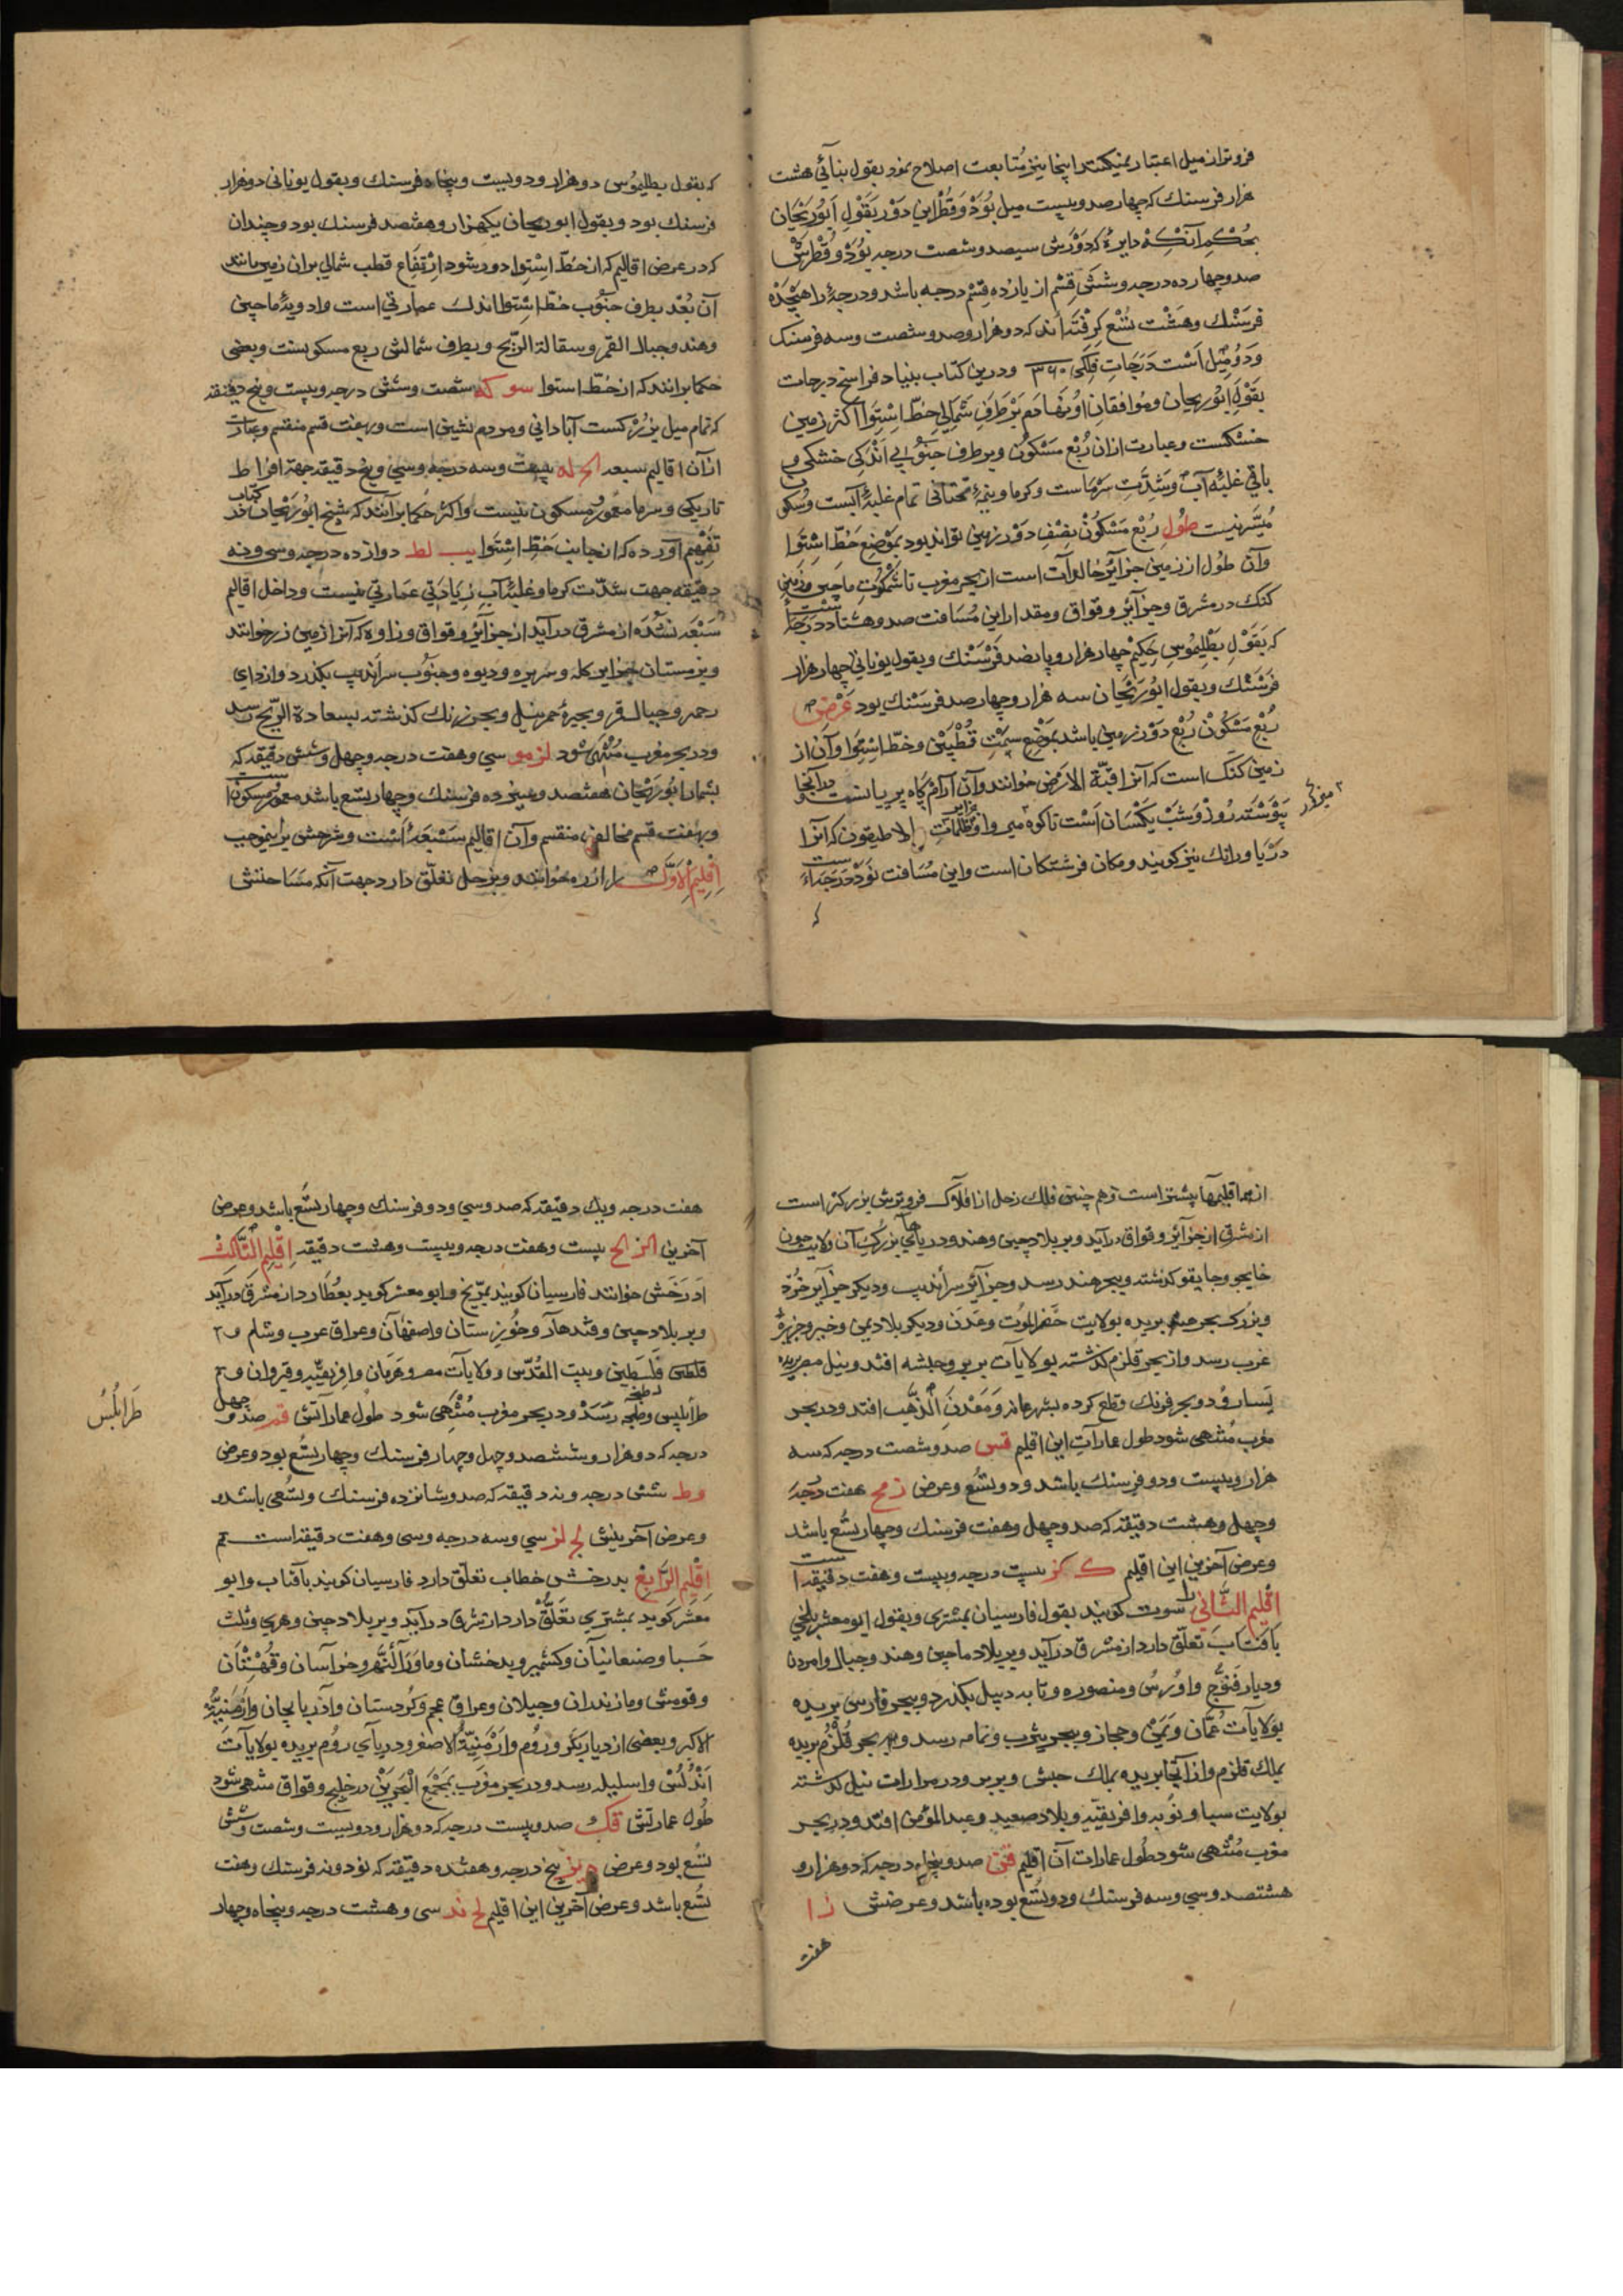 فروتر از میل اعتبار نمیکنند اینجا نیز متابعت اصلاح نمود بقول بنائی هشت
هزار فرسنك كه چهار صد وبیست میل بُوَدْ وَقُطْرِ این دَوْر بقَوْلِ اَبُورَیْحَان
بحُكْمِ آنكِهْ دایرهٔ كه دَوْرَش سیصد وشصت درجه بُوَدْ وقُطْرَشْ
صد وچهارده درجه وشَشْ قِسْم از یازده قِسْم درجه باشد ودرجهٔ را هَیْجْدَهْ
فَرسَنْك وهَشْت تُسْع كِرِفْتَه‌اند كه دو هزار وصد وشصت وسه فرسنك
وَدَوْ میل اَسْت دَرَجَاتِ فَلَكِی ٣٦٠ ودرین كتاب بنیاد فراسخ درجات
بقَوْلِ اَبُو رَیحان ومُوَافقانِ اوُ نهادم بَرْ طَرَفِ شَمَالِي خَطِّ اسْتِوَا اكثر زمین
خشكست وعبارت ازان رُبْع مَسْكُونْ وبر طرف جنُوبی اَنْدَكِی خشكی و
باقی غلبهٔ آب وشِدَّتِ سَرْماست وكرما ونیمهٔ تحتانی تمام غلبهٔ آبست وسكو
مُیَسَّر نیست طُولِ رُبْع مَسْكُونْ بنِصْفِ دَوْر زمین تواند بود بمَوْضِعِ خَطّ اسْتِوَا
وآن طُول از زمین جزآئر خالدات است از بحر مغرب تا شَنْكُوت ماچین وزمین
كنك در مشرق وجزآئر وقواق ومقدار این مُسَافت صد وهشتاد درجه است
كه بقَوْل بَطْلِیمُوسِ حَكِیْم چهار هزار وپانصد فَرسَنْك وبقول یونانی چهار هزار
فَرسَنْك وبقول ابُورَیْحَان سه هزار وچهار صد فرسَنْك بود عَرْضِ
رُبْع مَسْكُونْ رُبْعِ دَوْر زمین باشد بمَوْضِع سَمْتِ قُطْبَیْن وخطّ اسْتِوَا وآن از
زمین كنك است كه آنرا قبّة الارض خوانند وآن آرام كاه پریانست ودرآنجا
پَیْوَسْتَه رُوزْ وشَبْ یكسَان اَسْت تا كوه میرواوظُلمات جزایر الاطیقون كه آنرا
دریا ورانك نیز كویند ومكان فرشتكان است واین مُسَافت نَوَدْ درجه است
كه بقول بطلیموس دو هزار ودویست وپنجاه فرسنك وبقول یونانی دو هزار
فرسنك بود وبقول ابوریحان یكهزار وهفتصد فرسنك بود وچندان
كه در عرض اقالیم كه از خطّ اسْتِوا دور شود ارْتفَاعِ قطب شمالی بران زمین باشد
آن بُعْد بطرف جنُوب خطّ اسْتِوا اندك عمارتي است وادویهٔ ماچین
وهند وجبال القمر وسقالة الرّیح وبطرف شمالش ربع مسكونست وبعضی
حكما برانند كه از خطّ استوا سو كه شصت وشش درجه وبیست وپنج دقیقه
كه تمام میل بزُرْكست آبادانی ومردم نشین است وبهفت قسم منقسم وعبارت
از آن اقالیم سبعه الح له بیست وسه درجه وسی وپنج دقیقه جهة افراط
تاریكی وسرما معمور ومسكون نیست واكثر حكما برآنند كه شیخ ابُورَیْحَان در كتاب
تَفْهِیم آورده كه از جانب خَطِّ اِسْتِوا یب لط دوازده درجه وسی ونه
دقیقه جهت شدّت كرما وغلبهٔ آب زیادتی عمارتی نیست وداخل اقالیم
سَبْعَه نشُده از مشرق درآید از جزآئر وقواق وزاوه كه آنرا زمین زر خوانند
وبزمستان جزایر كله وسریره ودیوه وجنُوب سراندیپ بكذرد وازدای
رحمه وجبال قمر وبحیرهٔ حمر نیل وبحر زنك كذشته بسعادة الرّیح رسد
ودر بحر مغرب مُنْتَهَی شود لز مو سی وهفت درجه وچهل وشش دقیقه كه
بشمار ابُورَیْحَان هفتصد وسیزده فرسنك وچهار تسع باشد معمور ومسكونست
وبهفت قسم مخالف منقسم وآن اقالیم سَبْعَه است وشرحش براینموجب
اِقْلِیْم الْاَوّل را ارزه خوانند وبزحل تعلّق دارد جهت آنكه مَسَاحتش
از همه اقلیمها پیشتر است وهم چنین فلك زحل از افلاك فروترش بزركتر است
از مشرق از جزآئر وقواق درآید وبر بلاد چین وهند ودریاهآی بزُرك آن ولایت چون
خایجو وجایقو كذشته وببحر هند رسد وجزآئر سرأندیب ودیكر جزآیر خُرْد
وبزُرك بحر هند بریده بولایت حَضرالمُوت وعَدَن ودیكر بلاد یمن وخیبر وجزیرهٔ
عَرَب رسد واز بحر قُلزم كذشته بولایآت بربر وحبشه افتد ونیل مصر بریده
یَسَار رُود وبحر فرنك وقطع كرده بشهر غانه ومَعْدَن الذَّهَب افتد ودر بحر
مغرب مُنْتهی شود طول عمارآتِ این اقلیم قس صد وشصت درجه كه سه
هزار وبیست ودو فرسنك باشد ودو تُسْع وعرض ز مح هفت درجه
وچهل وهشت دقیقه كه صد وچهل وهفت فرسنك وچهار تُسْع باشد
وعرض آخرین این اقلیم ك كز بیست درجه وبیست وهفت دقیقه است
اقْلِیْم الثَّانِي را سوت كویند بقول فارسیان بمشتری وبقول ابو معشر بلخي
بآفتاب تعلّق دارد از مشرق درآید وبر بلاد ماچین وهند وجبال وامردن
ودیار قنوّج واوُرسُ ومنصوره وتا به دیبل بكذرد وببحر فارس بریده
بولایآت عُمّان ویَمَن وحجاز وببحر یثرب وتهامه رسد وبر بحر قُلزُم بریده
بملك قلزم واز آنجا بریده بملك حبش وبربر ودر مرارات نیل كذشته
بولایت سبا ونوبه وافریقیّه وبلاد صعید وعبد المؤمن افتد ودر بحر
مغرب مُنْتهی شود طُول عمارات آن اقلیم قن صد وپنجاه درجه كه دو هزار و
هشتصد وسی وسه فرسنك ودو تُسْع بوده باشد وعرضش ز ا
هفت
هفت درجه ویك دقیقه كه صد وسی ودو فرسنك وچهار تُسْع باشد وعرض
آخرین الز الح بیست وهفت درجه وبیست وهشت دقیقه اِقْلِیْم الثَّالِثْ
ادرَخَش خوانند فارسیان كویند بمرّیخ وابو معشر كوید بعُطارد از مشرق درآید
وبر بلاد چین وقندهار وخُوزستان واصفهان وعراق عرب وشام و
فَلَسطین وبیت المُقدّس وولایآت مصر وهَرَمان وافریقیّه وقیروان و
طرآبلیس وطنجه رسد ودر بحر مغرب مُنْتَهی شود طُول عمارآتش قم صد و چهل
درجه كه دو هزار وششصد وچهل وچهار فرسنك وچهار تُسْع بود وعرض
وط شش درجه ونه دقیقه كه صد وشانزده فرسنك وتُسْعی باشد و
وعرض آخرینش لج لز سی وسه درجه وسی وهفت دقیقه است
اِقْلِیْم الرَّابِع بدرخش خطاب تعلّق دارد فارسیان كویند بآفتاب وابو
معشر كوید بمشتری تعَلّق دارد از شرق درآید وبر بلاد چین وهری وثلث
حَسبا وصنعانیآن وكشمیر وبدخشان وماوَرَآءالنَّهر وخرآسان وقُهُسْتان
وقومش ومازندران وجیلان وعراق عجم وكُردستان وآذربایجان وارْمَنِیَّةُ
الاكبر وبعضی از دیار بكر ورُوم وارْمَنِیَّةُ الاصغر ودریآی رُوم بریده بولایآتَ
اَنْدُلُسْ واسلیله رسد ودر بحر مغرب بمَجْمَعِ الْبَحْرَیْن در خلیج وقواق منتهی شود
طُول عمارتش قك صد وبیست درجه كه دو هزار ودویست وشصت وشش
تُسْع بود وعرض ه یز پنج درجه وهفده دقیقه كه نود ونه فرسنك وهفت
تُسْع باشد وعرض آخرین این اقلیم لح ند سی وهشت درجه وپنجاه وچهار
طَرَابُلُسُ